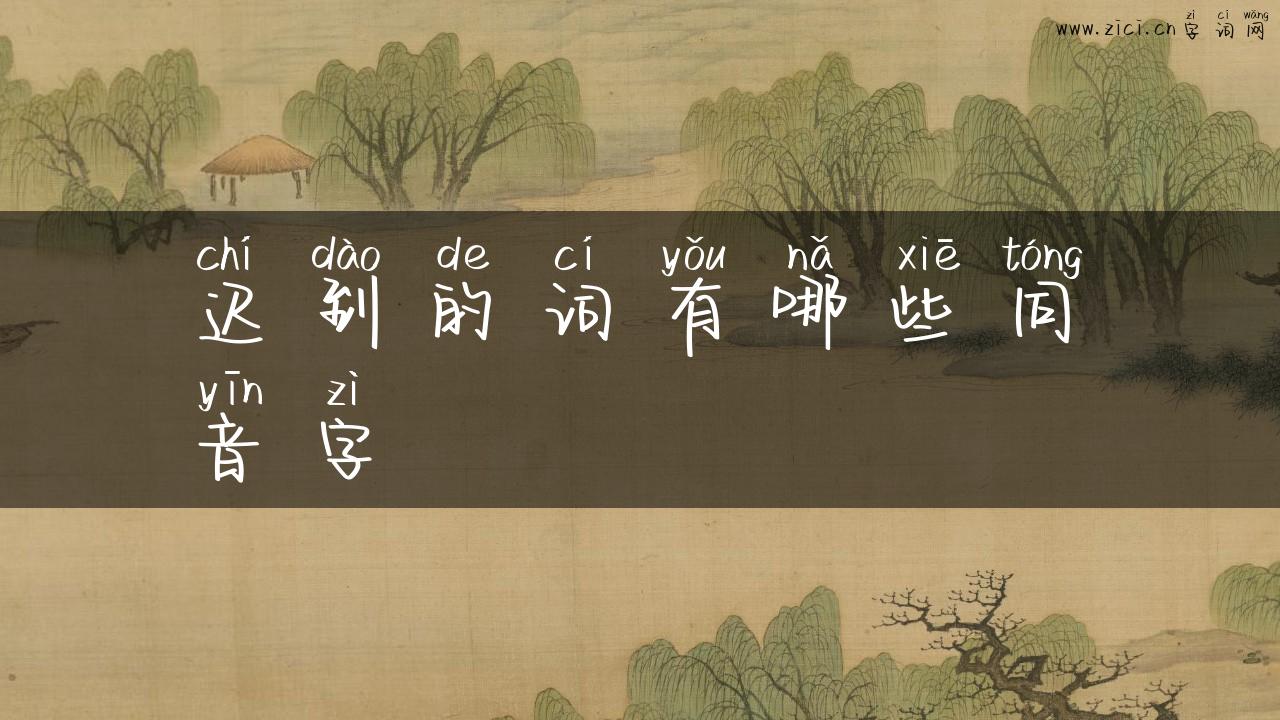 zì cí wǎng
www.zici.cn 字词网
chí dào de cí yǒu nǎ xiē tóng
迟到的词有哪些同
yīn zì
音字